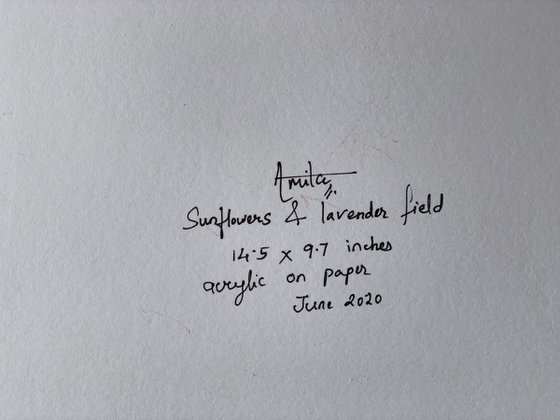 Amita
Sunflowers & lavender field
14.5 x 9.7 inches
acrylic on paper
June 2020